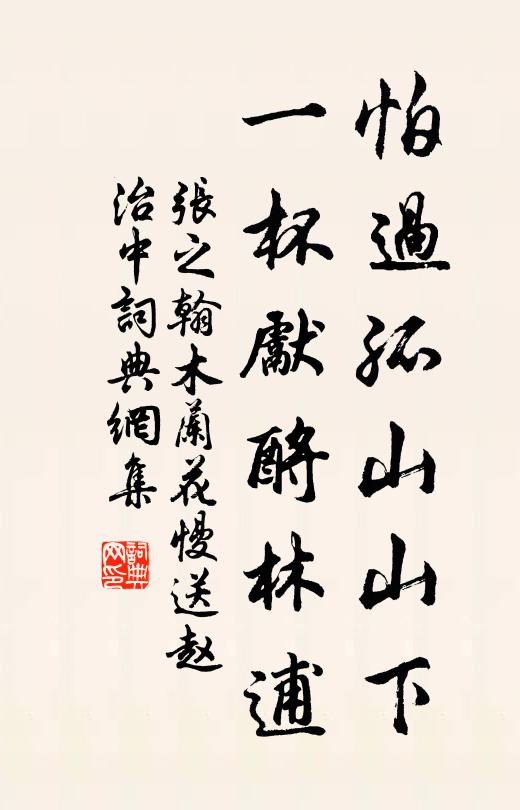 怕過孤山山下
一杯獻酹林逋
張之翰木蘭花慢送赵
治中詞典網集
詞典网印